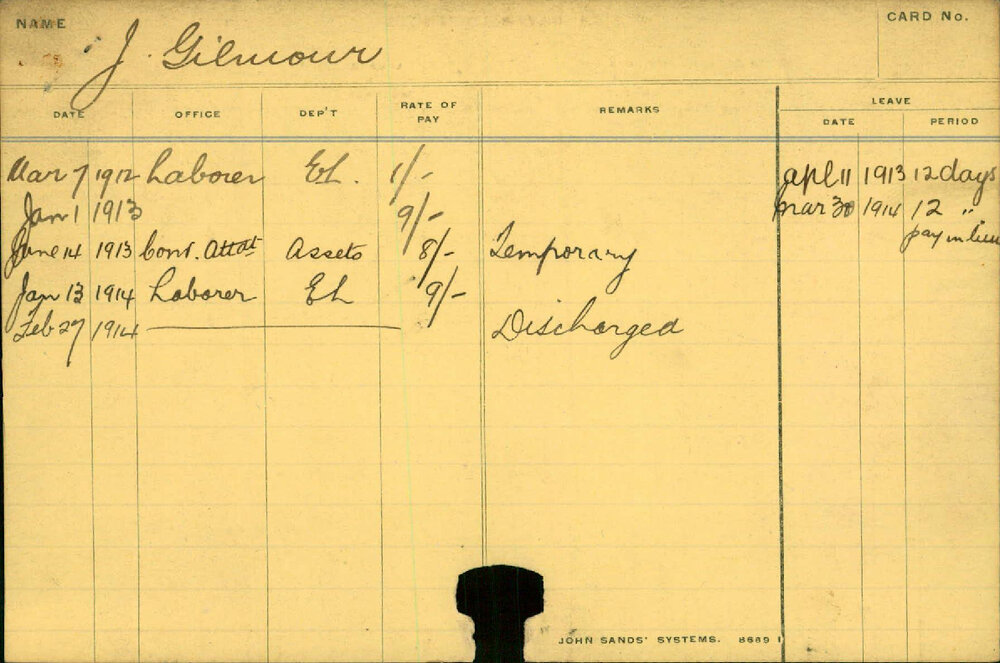 NAME
CARD No.
J Gilmour
DATE OFFICE DEP'T RATE OF PAY REMARKS LEAVE
DATE PERIOD
Mar 7 1912 Laborer EL. 1/- apl 11 1913 12 days
Jan 1 1913 9/- mar 30 1914 12 "
pay in lieu
June 14 1913 Conv. Attdt Assets 8/- Temporary
Jan 13 1914 Laborer EL 9/-
Feb 27 1914 Discharged
JOHN SANDS' SYSTEMS. 8689 1